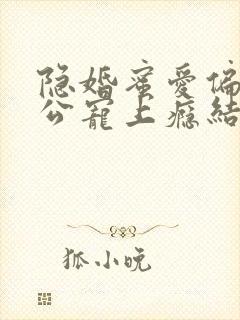 隐婚蜜爱偏
公宠上瘾结
狐小晚